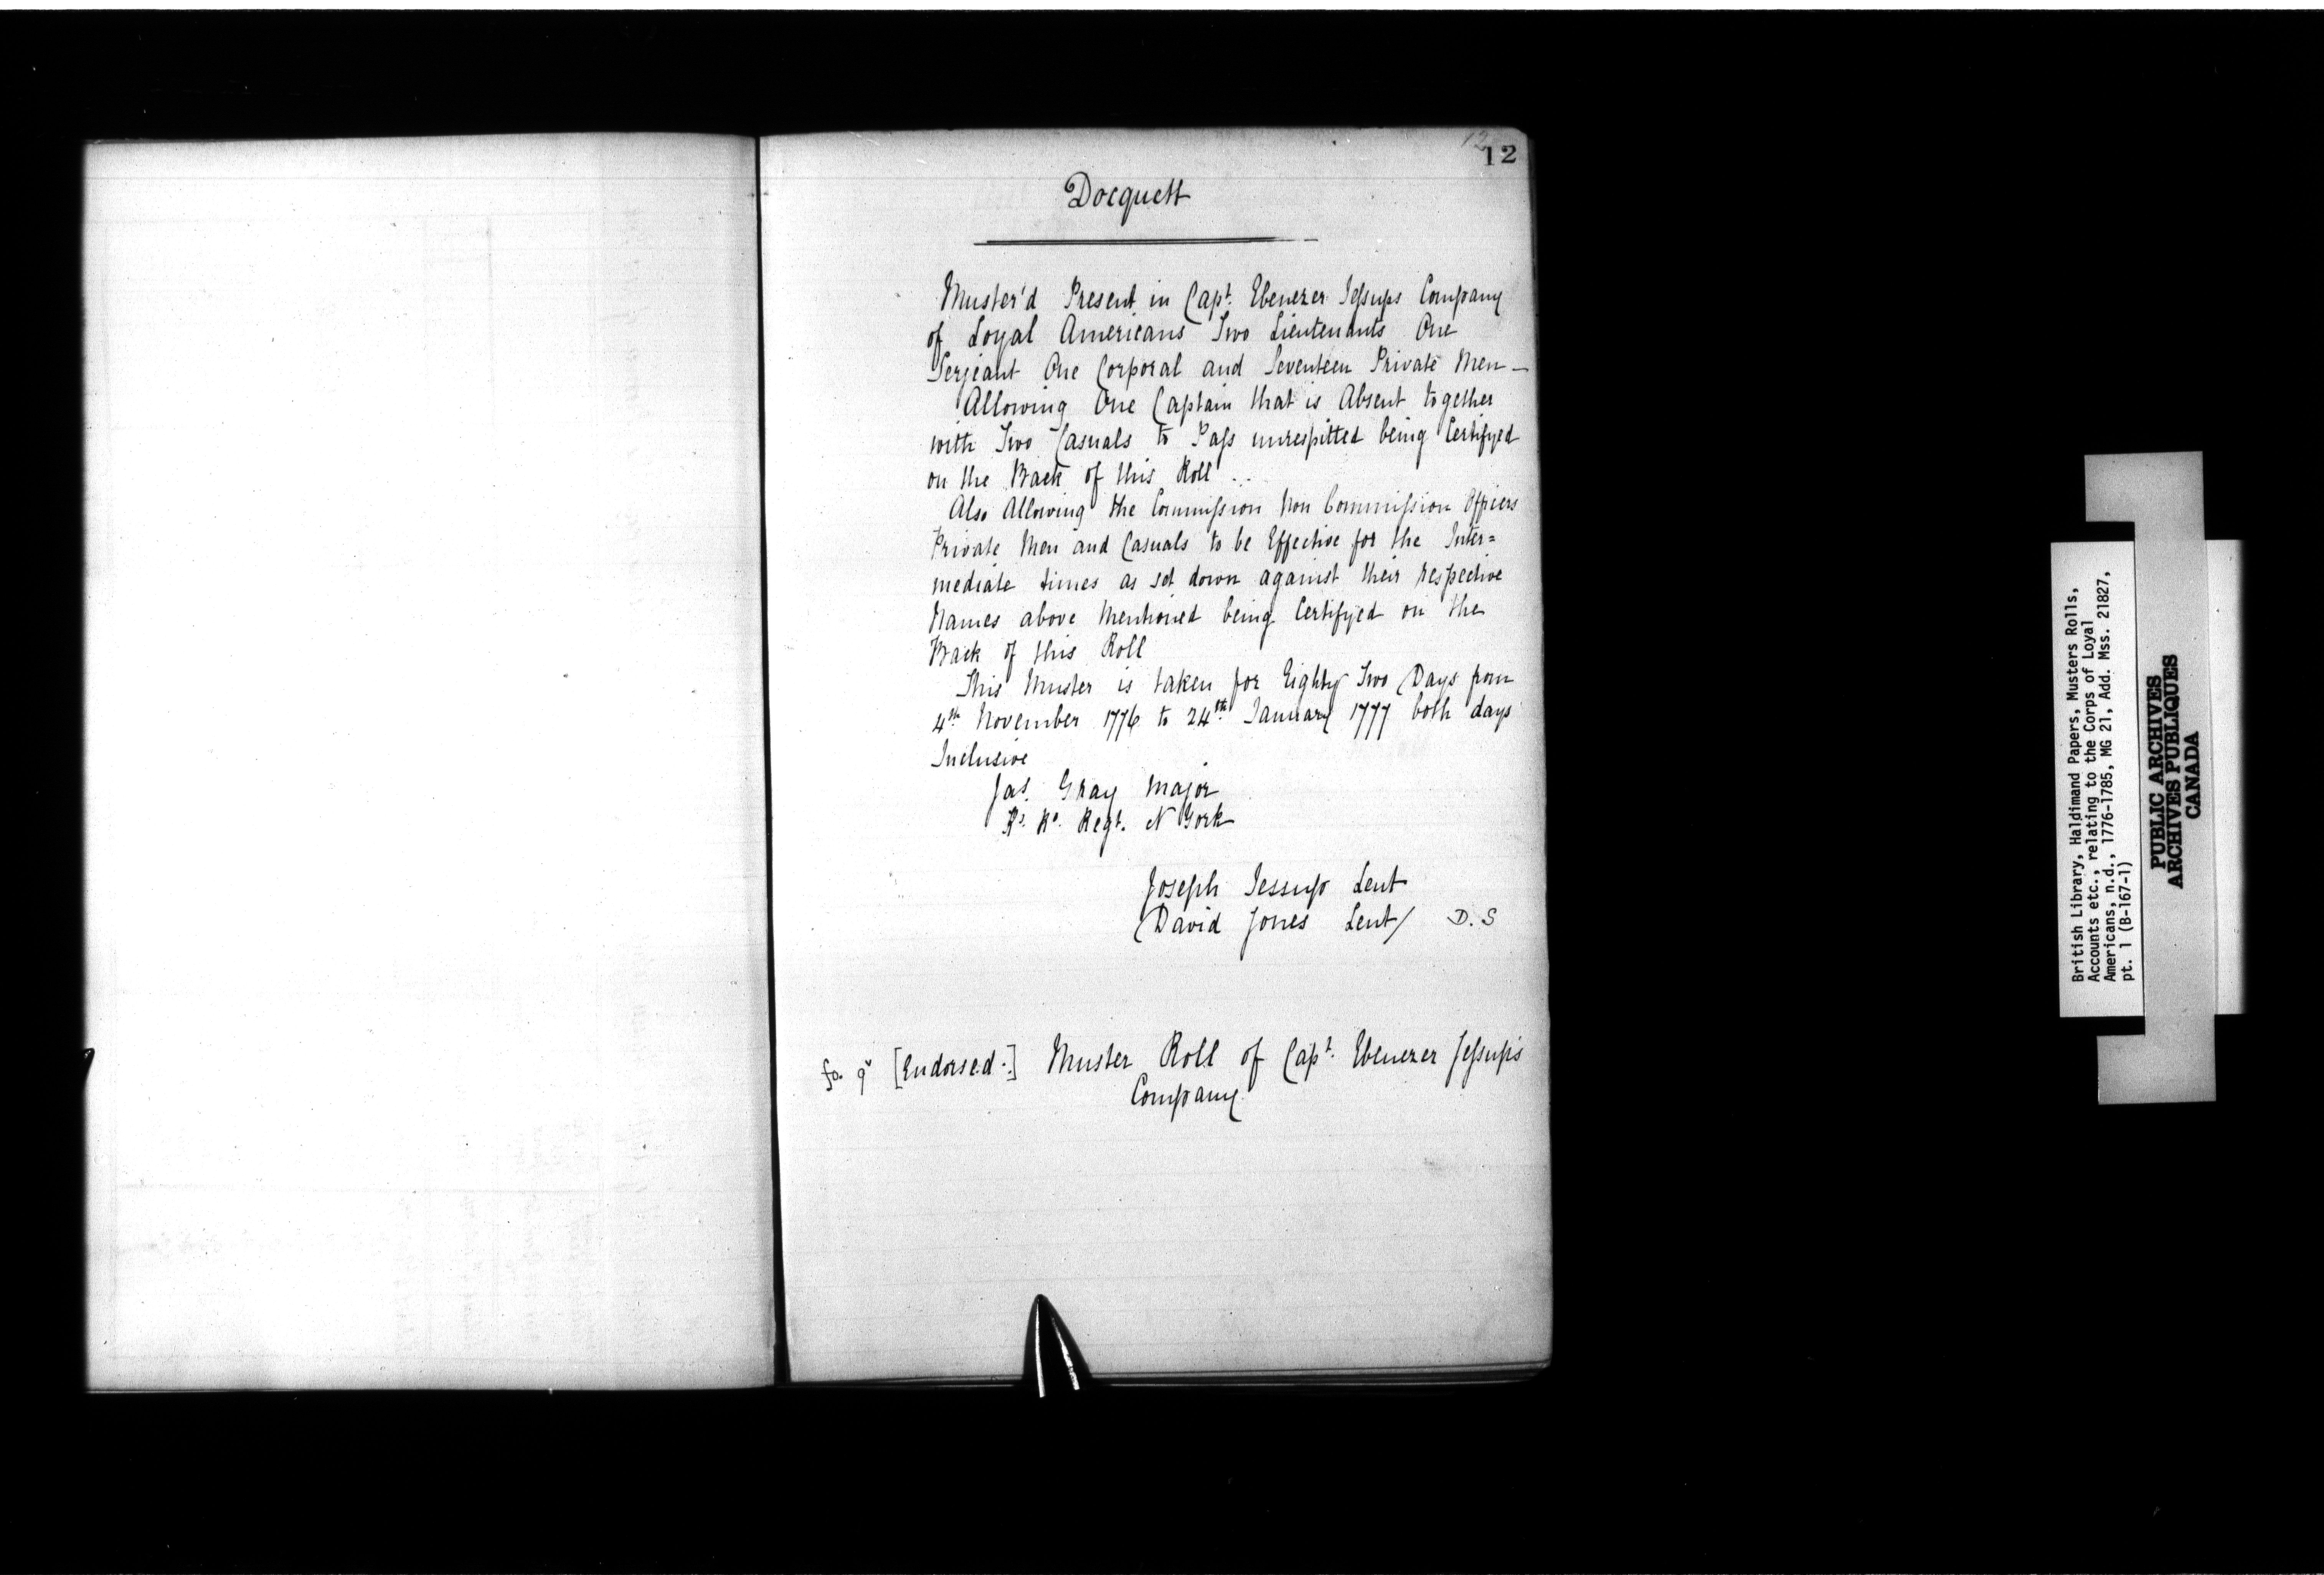 12
12
Docquett
Muster'd Present in Capt. Ebenezer Jessups Company
of Loyal Americans Two Lieutenants One
Serjeant One Corporal and Seventeen Private Men —
Allowing One Captain that is Absent together
with Two Casuals to Pass unrespitted being Certifyed
on the Back of this Roll ...
Also Allowing the Commission Non Commission Officers
Private Men and Casuals to be Effective for the Inter=
mediate times as set down against their respective
Names above Mentioned being Certifyed on the
Back of this Roll
This Muster is taken for Eighty Two Days from
4th November 1776 to 24th January 1777 both days
Inclusive
Jas. Gray Major
Rl. Ro. Regt. N York
Joseph Jessup Leut
David Jones Leut/ D.S
fo. 9v [Endorsed:] Muster Roll of Capt. Ebenezer Jessup's
Company
British Library, Haldimand Papers, Musters Rolls,
Accounts etc., relating to the Corps of Loyal
Americans, n.d., 1776-1785, MG 21, Add. Mss. 21827,
pt. 1 (B-167-1)
PUBLIC ARCHIVES
ARCHIVES PUBLIQUES
CANADA